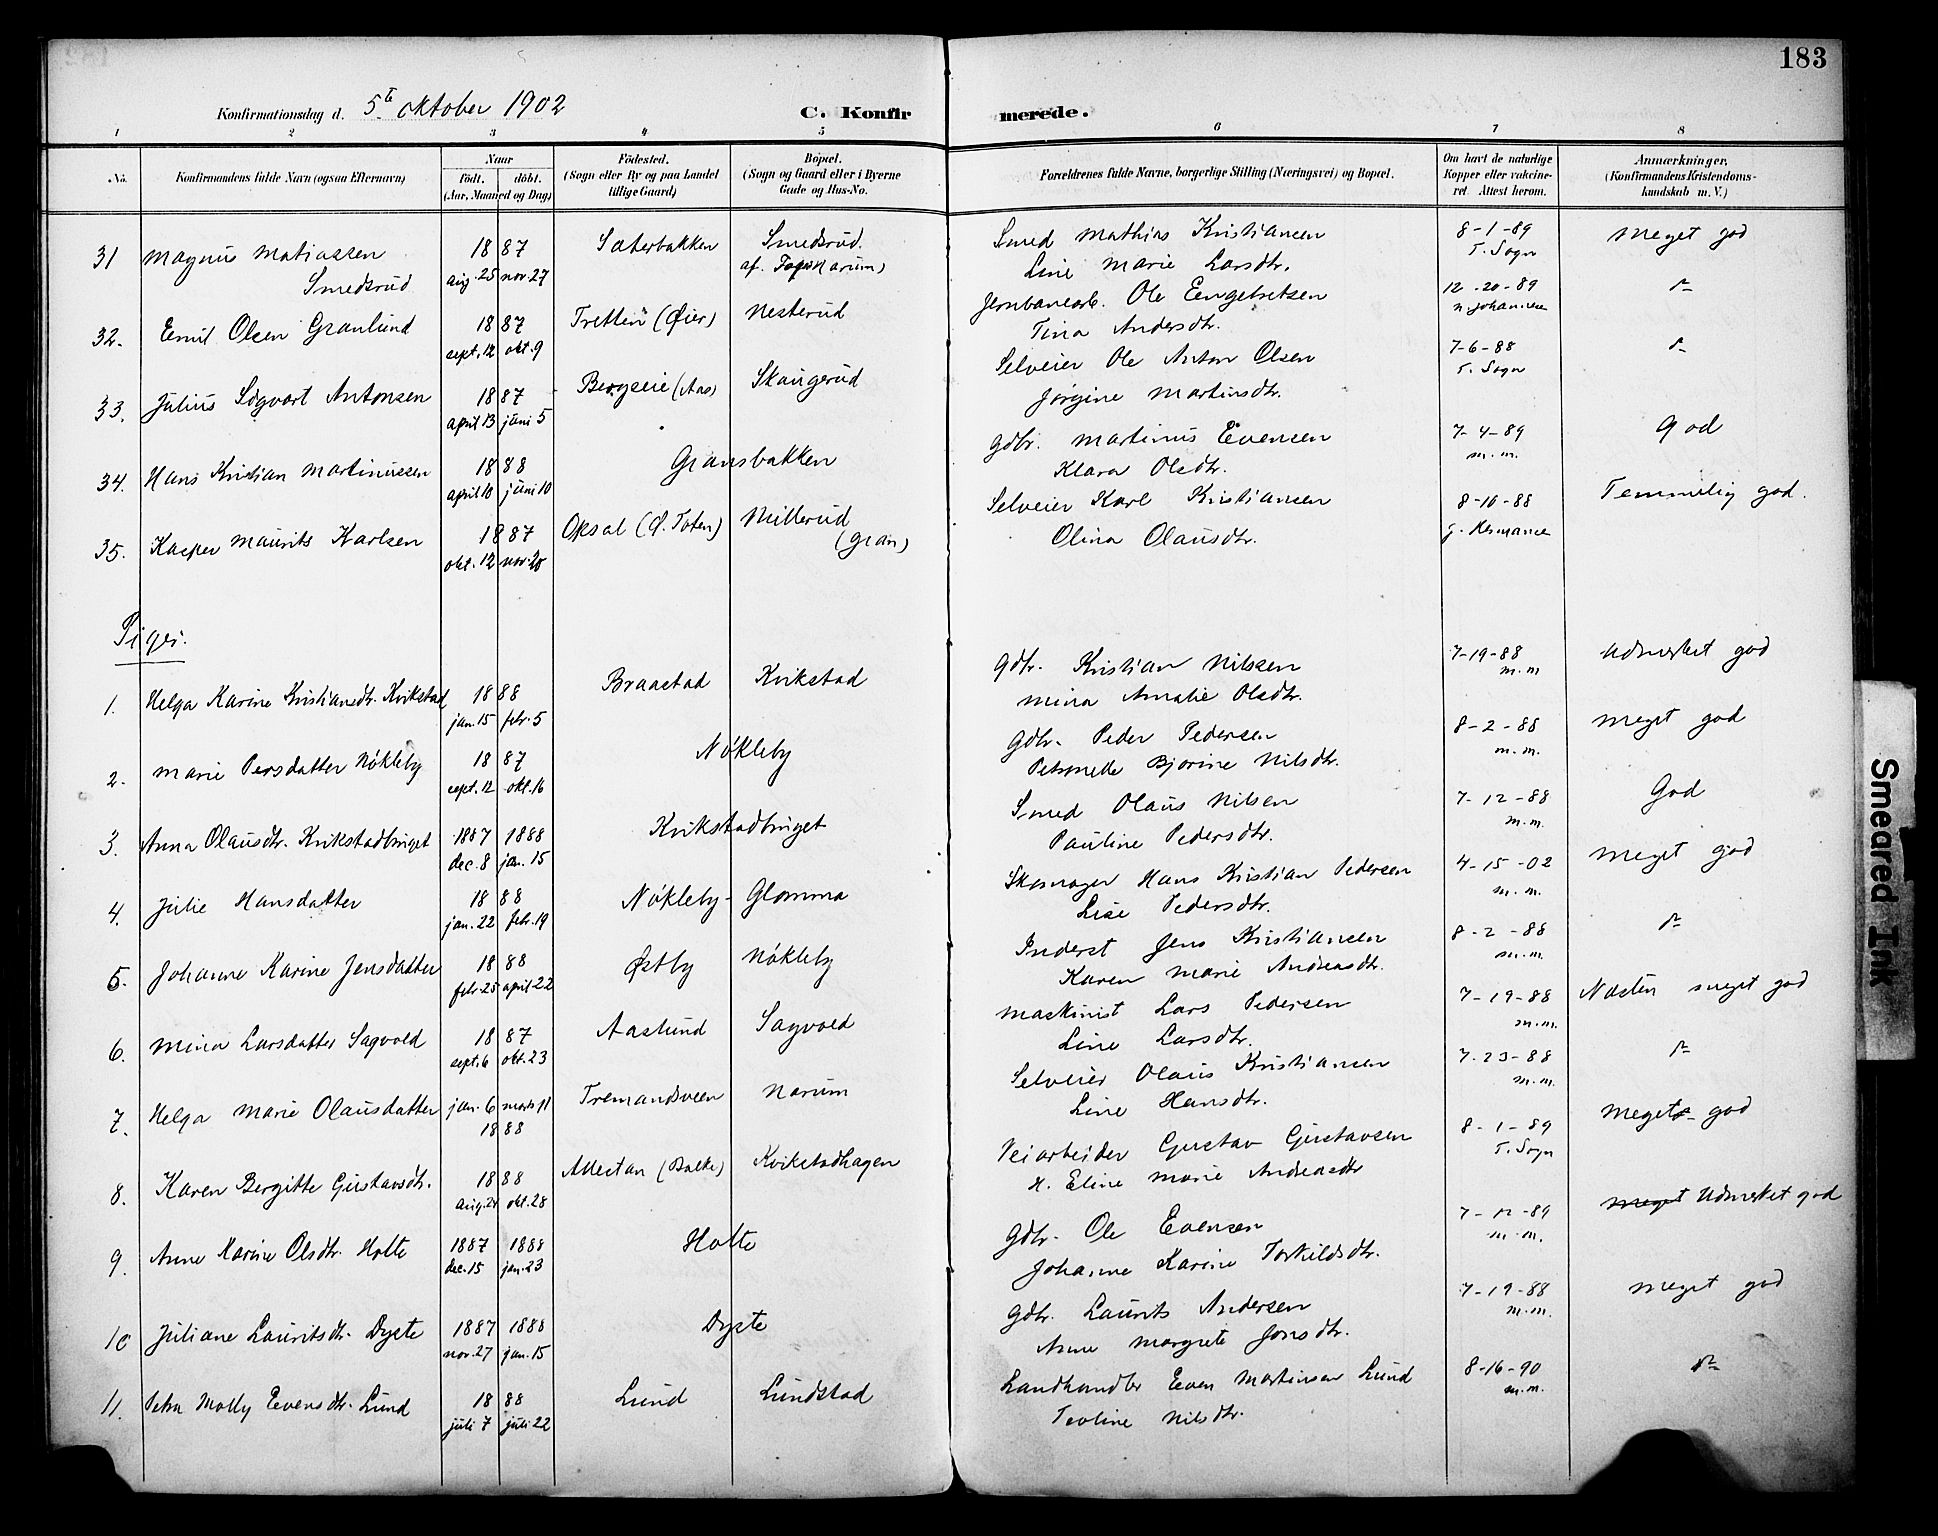 183
Konfirmationsdag d. 5te oktober 1902 C. Konfirmerede.
1 2 3 4 5 6 7 8
No. Konfirmandens fulde Navn (ogsaa Efternavn) Naar födt. döbt. (Aar, Maaned og Dag) Födested. (Sogn eller By og paa Landet tillige Gaard) Bopæl. (Sogn og Gaard eller i Byerne Gade og Hus-No. Forældrenes fulde Navne, borgerlige Stilling (Næringsvei) og Bopæl. Om havt de naturlige Kopper eller vakcineret. Attest herom. Anmærkninger, (Konfirmandens Kristendomskundskab m. V.)
31 Magnus Matiassen 1887 Sæterbakken Smedsrud Smed Mathias Kristiansen 8-1-89 Meget god
Smedsrud aug. 25 nov. 27 af. Narum) Line Marie Larsdtr. T. Sogn
32. Emil Olsen Granlund 1887 Tretten (Øier) Nesterud Jernbanearb. Ole Eengebretsen 12-20-89 do
sept. 12 okt. 9 Tina Andersdtr. N. Johannesen
33. Julius Sigvart Antonsen 1887 Bergseie (Aas) Skaugerud Selveier Ole Anton Olsen 7-6-88 do
april 13 juni 5 Jørgine Martinsdtr. T. Sogn
34. Hans Kristian Martinussen 1888 Gransbakken Gdbr. Martinus Evensen 7-4-89 God
april 10 juni 10 Klara Olsdtr. m. m.
35. Kasper Maurits Karlsen 1887 Opsal (Ø. Toten) Millerud Selveier Karl Kristiansen 8-10-88 Temmelig god.
okt. 12 nov. 20 (Gran) Olina Olausdtr.
Piger.
1. Helga Karine Kristiansdtr. Kvikstad 1888 Braastad Kvikstad Gdbr. Kristian Nilssen 7-19-88 Udmerket god
jan. 15 febr. 5 Mina Amalie Olsdtr. m. m
2. Marie Persdatter Nökleby 1887 Nökleby Gdbr. Peder Pedersen 8-2-88 Meget god
sept. 12 okt. 16 Petronelle Bjørine Nilsdtr. m. m.
3. Anna Olausdtr. Kvikstadbruget 1887 1888 Kvikstadbruget Smed Olaus Nilsen 7-12-88 God
dec. 8 jan. 15 Pauline Pedersdtr. m. m.
4. Julie Hansdatter 1888 Nökleby - Glomma Skomager Hans Kristian Pedersen 4-15-02 Meget god
jan. 22 febr. 19 Lise Pedersdtr. m. m.
5. Johanne Karine Jensdatter 1888 Østby Nökleby Inderst Jens Kristiansen 8-2-88 do
febr. 25 april 22 Karen Marie Andreasdtr. m. m.
6. Mina Larsdatter Sagvold 1887 Aaslund Sagvold Maskinist Lars Pedersen 7-19-88 Næsten meget god
sept. 6 okt. 23 Line Larsdtr. m. m.
7. Helga Marie Olausdatter jan. 6 marts 11 Tremandsveen Narum Selveier Olaus Kristiansen 7-23-88 do
1888 Line Hansdtr. m. m.
8. Karen Bergitte Gustavsdtr. 1888 Allestan (Balke) Kvikstadhagen Veiarbeider Gustav Gustavsen 8-1-89 Meget god
aug. 24 okt. 28 H. Eline Marie Andreasdtr T. Sogn
9. Anne Karine Olsdtr. Holte 1887 1888 Holte Gdbr. Ole Evensen 7-12-89 Meget Udmerket god
dec. 15 jan. 23 Johanne Karine Torkildsdtr. m. m.
10 Juliane Lauritsdtr. Dyste 1887 1888 Dyste Gdbr. Laurits Andersen 7-19-88 Meget god
nov. 27 jan. 15 Anne Margrete Jonsdtr. m. m.
11. Petra Molly Evensdtr. Lund 1888 Lund Lundstad Landhandler Even Martinsen Lund 8-16-90 do
juli 7 juli 22 Teoline Nilsdtr. m. m.
Smeared Ink